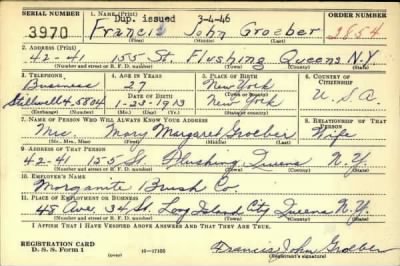 SERIAL NUMBER 1. NAME (Print) ORDER NUMBER
Dup. issued 3-4-46
3970 Francis John Groeber 2854
(First) (Middle) (Last)
2. ADDRESS (Print)
42-41 155 St. Flushing Queens N.Y.
(Number and street or R. F. D. number) (Town) (County) (State)
3. TELEPHONE 4. AGE IN YEARS 5. PLACE OF BIRTH 6. COUNTRY OF CITIZENSHIP
Business 27 New York
DATE OF BIRTH
Stillwell 4,5804 1-23-1913 New York U.S.A.
(Exchange) (Number) (Mo.) (Day) (Yr.) (State or country)
7. NAME OF PERSON WHO WILL ALWAYS KNOW YOUR ADDRESS 8. RELATIONSHIP OF THAT PERSON
Mrs. Mary Margaret Groeber Wife
(Mr., Mrs., Miss) (First) (Middle) (Last)
9. ADDRESS OF THAT PERSON
42-41 155 St. Flushing Queens N.Y.
(Number and street or R. F. D. number) (Town) (County) (State)
10. EMPLOYER'S NAME
Morganite Brush Co.
11. PLACE OF EMPLOYMENT OR BUSINESS
48 Ave. 34 St. Long Island City Queens N.Y.
(Number and street or R. F. D. number) (Town) (County) (State)
I AFFIRM THAT I HAVE VERIFIED ABOVE ANSWERS AND THAT THEY ARE TRUE.
REGISTRATION CARD
D. S. S. Form 1 16-17105 Francis John Groeber
(Registrant's signature)